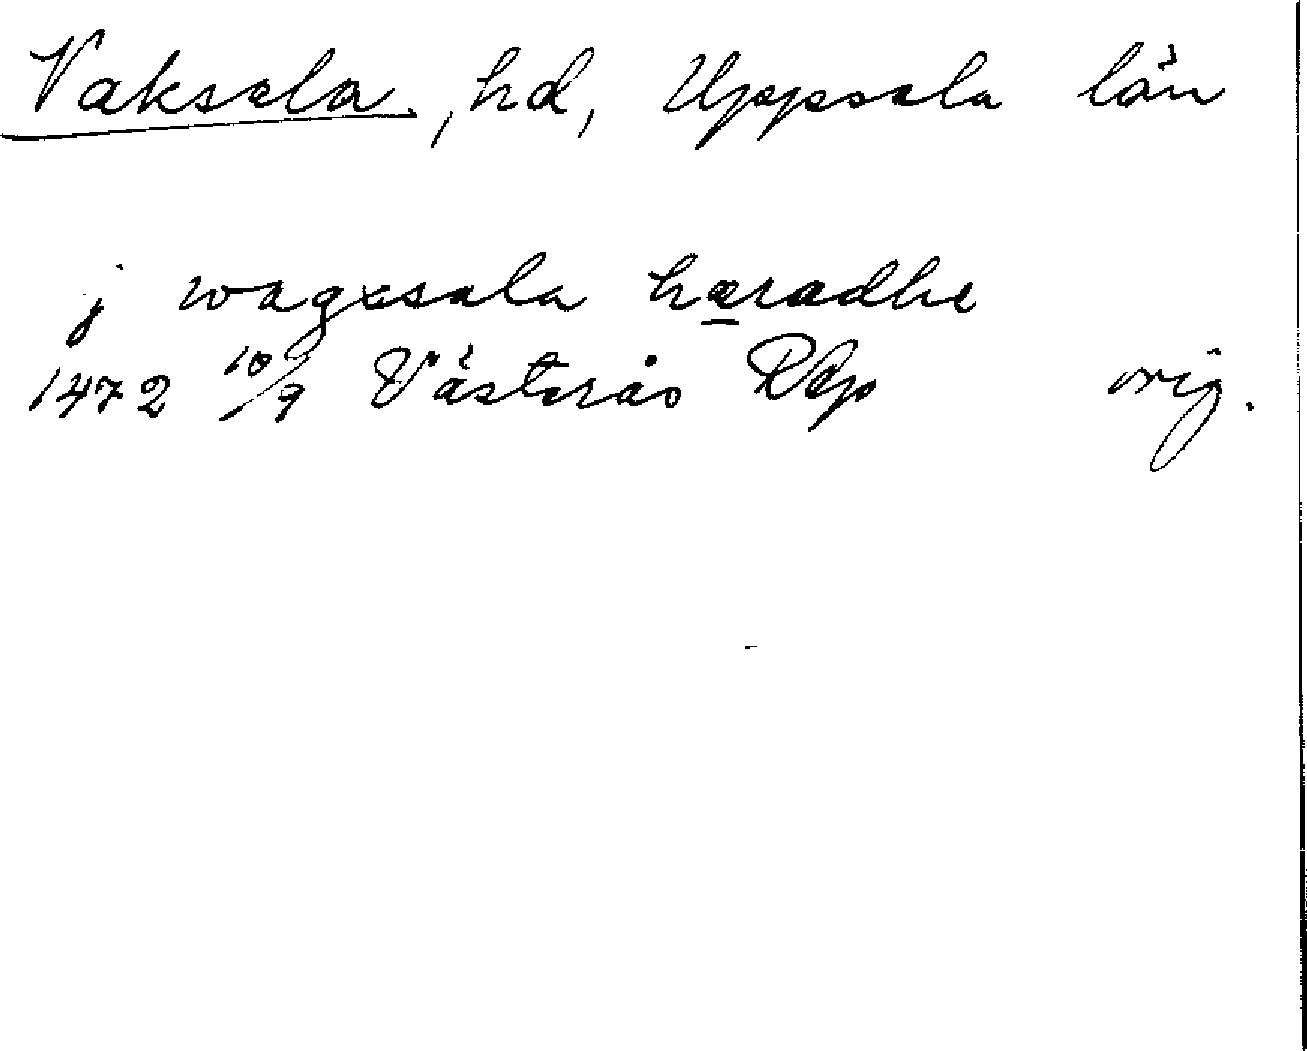 Vaksala, hd, Uppsala län
j wagxsala hæradhe
1472 10/9 Västerås RAp orig.